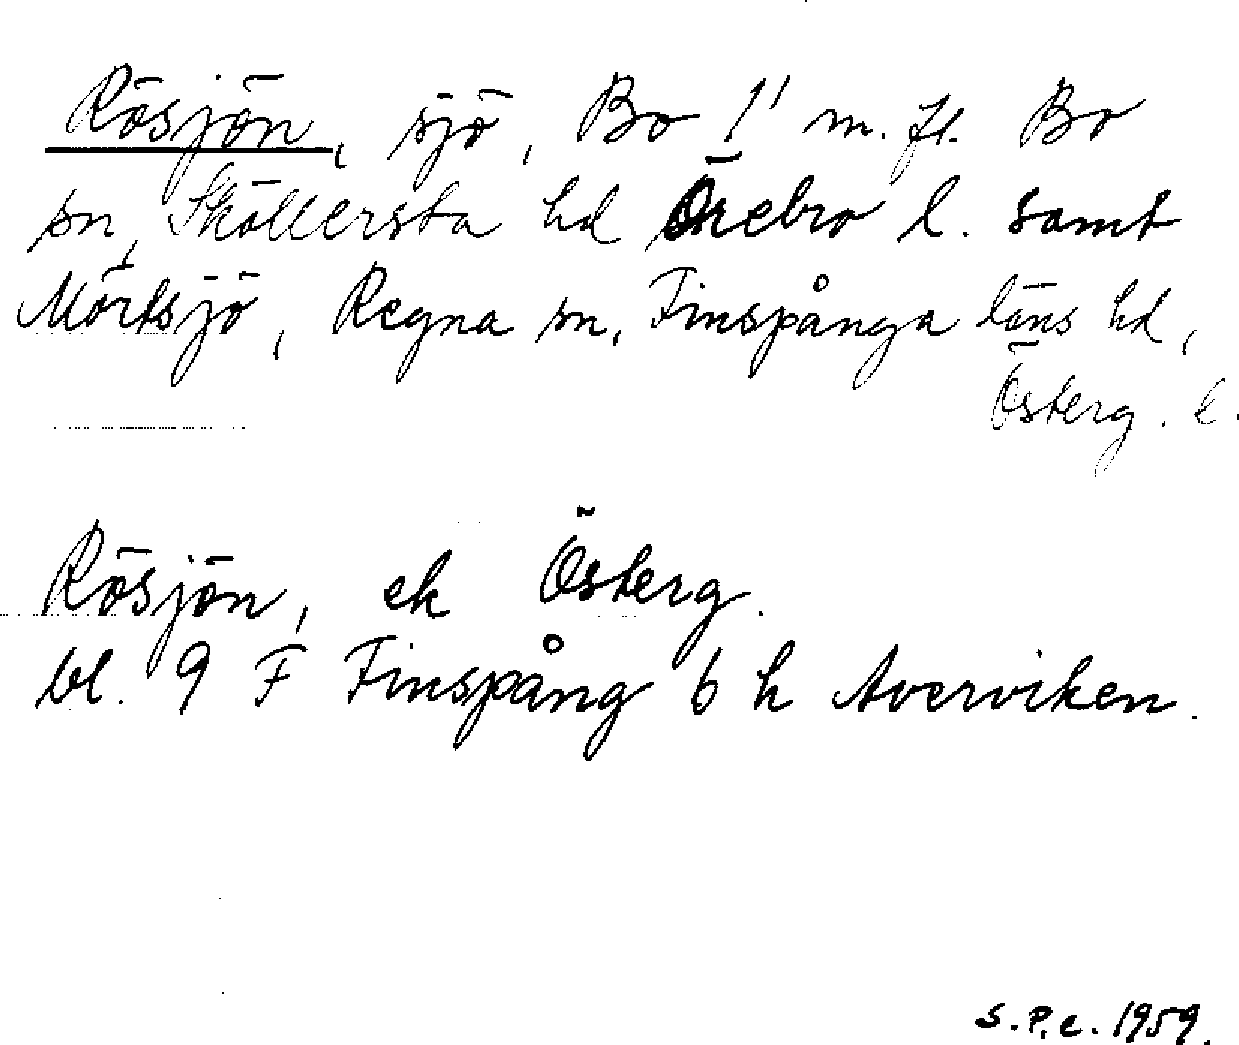 Rösjön, sjö, Bo 1¹ m.fl. Bo
sn, Sköllersta hd Örebro l. samt
Mörtsjö, Regna sn, Finspånga läns hd,
Österg. l.
Rösjön, ek Österg.
bl. 9 F Finspång 6 h Averviken.
S.P.C. 1959.